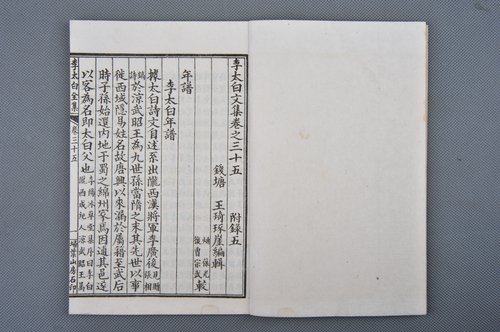 李太白文集卷之三十五 附錄五
錢塘 王琦琢崖編輯
較
年譜
李太白年譜
據太白詩文自述系出隴西漢將軍李廣後
於涼武昭王為九世孫當隋之末其先世以事
徙西域隱易姓名故唐興以來漏於屬籍至武后
時子孫始還內地于蜀之綿州家焉因逋其邑遂
以客為名即太白父也
李太白全集 卷三十五